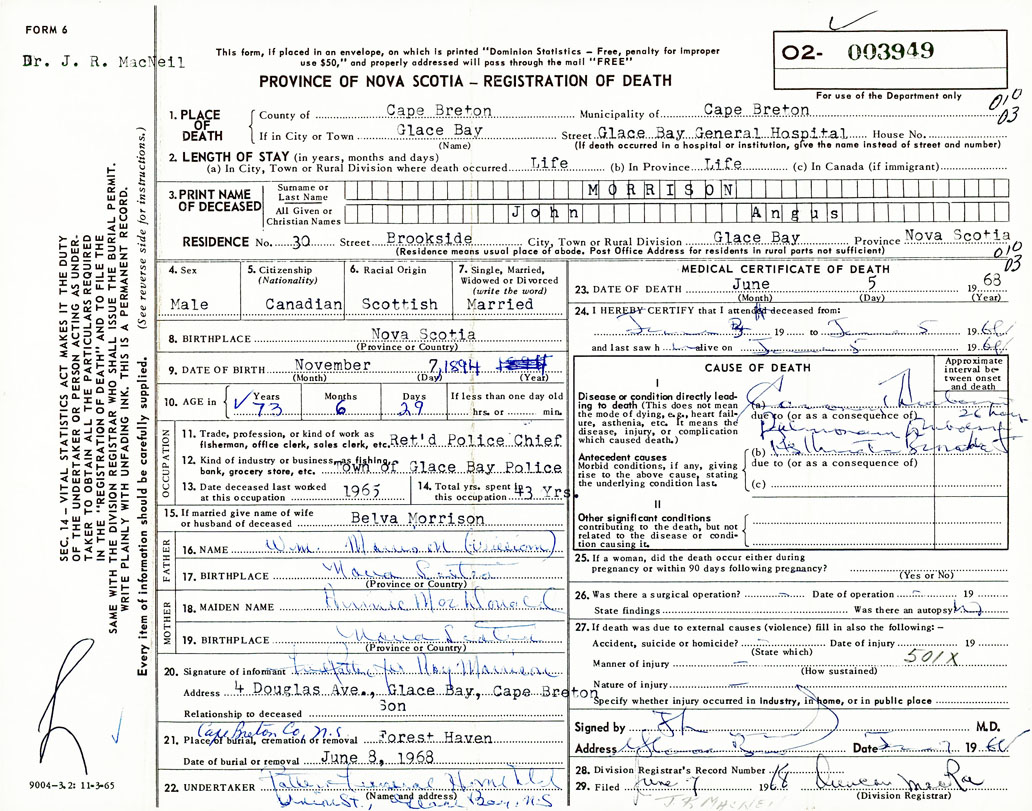 FORM 6
Dr. J. R. MacNeil
This form, if placed in an envelope, on which is printed "Dominion Statistics – Free, penalty for improper
use $50," and properly addressed will pass through the mail "FREE"
PROVINCE OF NOVA SCOTIA – REGISTRATION OF DEATH
02- 003949
For use of the Department only
010
03
1. PLACE OF DEATH
County of Cape Breton Municipality of Cape Breton
If in City or Town Glace Bay Street Glace Bay General Hospital House No.
(Name) (If death occurred in a hospital or institution, give the name instead of street and number)
2. LENGTH OF STAY (in years, months and days)
(a) In City, Town or Rural Division where death occurred Life (b) In Province Life (c) In Canada (if immigrant)
3. PRINT NAME OF DECEASED
Surname or Last Name MORRISON
All Given or Christian Names John Angus
RESIDENCE No. 30 Street Brookside City, Town or Rural Division Glace Bay Province Nova Scotia
(Residence means usual place of abode. Post Office Address for residents in rural parts not sufficient)
010
03
4. Sex
Male
5. Citizenship
(Nationality)
Canadian
6. Racial Origin
Scottish
7. Single, Married,
Widowed or Divorced
(write the word)
Married
8. BIRTHPLACE Nova Scotia
(Province or Country)
9. DATE OF BIRTH November 7, 1894
(Month) (Day) (Year)
10. AGE in Years Months Days If less than one day old
73 6 29 hrs. or min.
OCCUPATION
11. Trade, profession, or kind of work as
fisherman, office clerk, sales clerk, etc. Ret'd Police Chief
12. Kind of industry or business, as fishing,
bank, grocery store, etc. Town of Glace Bay Police
13. Date deceased last worked
at this occupation 1965
14. Total yrs. spent in
this occupation 43 Yrs.
15. If married give name of wife
or husband of deceased Belva Morrison
FATHER
16. NAME Wm.
17. BIRTHPLACE Nova Scotia
(Province or Country)
MOTHER
18. MAIDEN NAME
19. BIRTHPLACE Nova Scotia
(Province or Country)
20. Signature of informant
Address 4 Douglas Ave., Glace Bay, Cape Breton
Relationship to deceased Son
Cape Breton Co. N.S.
21. Place of burial, cremation or removal Forest Haven
Date of burial or removal June 8, 1968
22. UNDERTAKER
(Name and address)
Glace Bay, N.S
MEDICAL CERTIFICATE OF DEATH
23. DATE OF DEATH June 5 1968
(Month) (Day) (Year)
24. I HEREBY CERTIFY that I attended deceased from:
19 to June 5 19
and last saw h alive on June 5 19
CAUSE OF DEATH
Approximate
interval be-
tween onset
and death
I
Disease or condition directly lead-
ing to death (This does not mean
the mode of dying, e.g., heart fail-
ure, asthenia, etc. It means the
disease, injury, or complication
which caused death.)
(a)
due to (or as a consequence of)
Antecedent causes
Morbid conditions, if any, giving
rise to the above cause, stating
the underlying condition last.
(b)
due to (or as a consequence of)
(c)
II
Other significant conditions
contributing to the death, but not
related to the disease or condi-
tion causing it.
25. If a woman, did the death occur either during
pregnancy or within 90 days following pregnancy?
(Yes or No)
26. Was there a surgical operation? Date of operation
State findings Was there an autopsy
27. If death was due to external causes (violence) fill in also the following: –
Accident, suicide or homicide? Date of injury 19
(State which) 501X
Manner of injury
(How sustained)
Nature of injury
Specify whether injury occurred in Industry, in home, or in public place
Signed by M.D.
Address Date 19
28. Division Registrar's Record Number
29. Filed June 7
(Division Registrar)
SEC. 14 – VITAL STATISTICS ACT MAKES IT THE DUTY
OF THE UNDERTAKER OR PERSON ACTING AS UNDER-
TAKER TO OBTAIN ALL THE PARTICULARS REQUIRED
IN THE "REGISTRATION OF DEATH" AND TO FILE THE
SAME WITH THE DIVISION REGISTRAR WHO SHALL ISSUE THE BURIAL PERMIT.
WRITE PLAINLY WITH UNFADING INK. THIS IS A PERMANENT RECORD.
Every item of information should be carefully supplied. (See reverse side for instructions.)
9004-3.2: 11-3-65